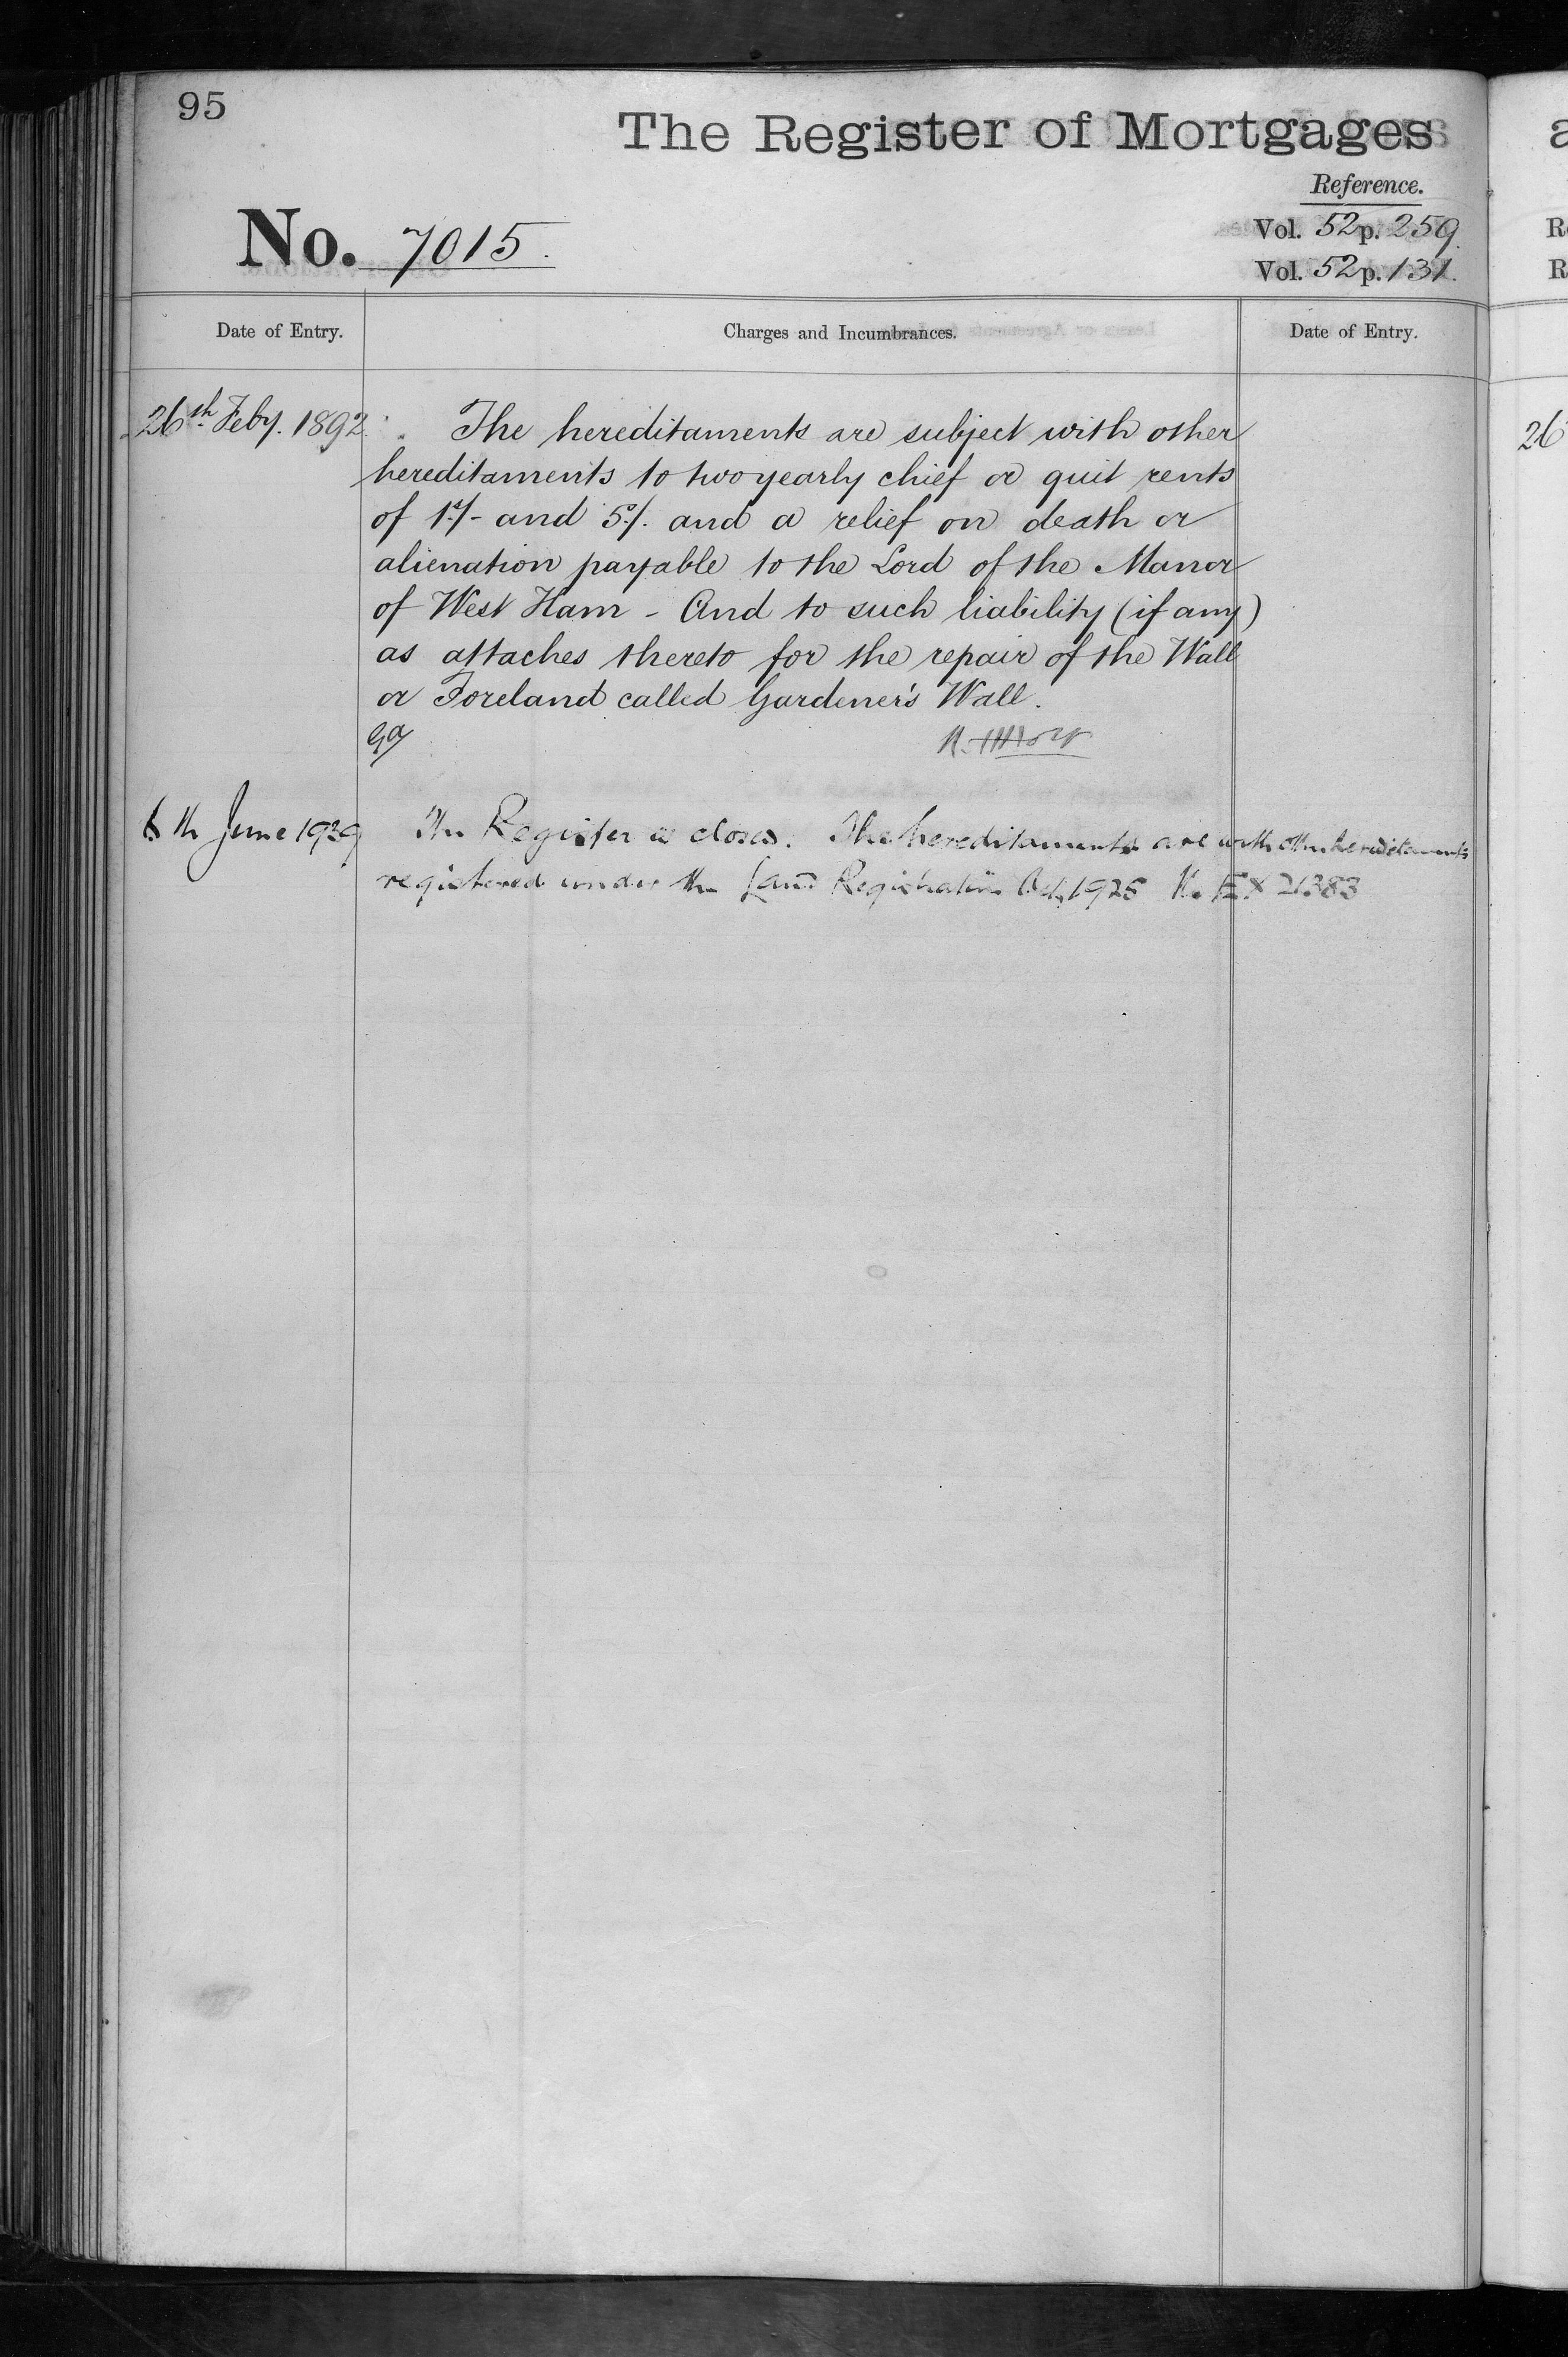 95
The Register of Mortgages
Reference.
No. 7015.
Vol. 52 p. 259.
Vol. 52 p. 131.
Date of Entry.
Charges and Incumbrances.
Date of Entry.
26th Feby. 1892. The hereditaments are subject with other
hereditaments to two yearly chief or quit rents
of 1s/- and 5s/. and a relief on death or
alienation payable to the Lord of the Manor
of West Ham - And to such liability (if any)
as attaches thereto for the repair of the Wall
or Foreland called Gardener's Wall.
6th June 1929 The Register is closed. The hereditaments are with other hereditaments
registered under the Land Registration Act, 1925 No. EX 21383
a
R
R
26